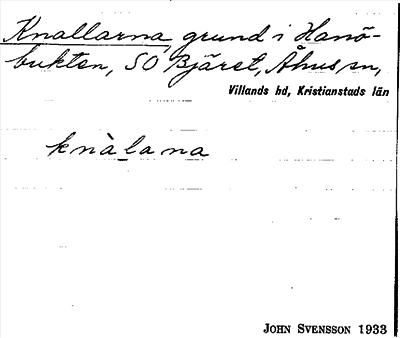 Knallarna, grund i Hanö-
bukten, SO Bjäret, Åhus sn,
Villands hd, Kristianstads län
knàlana
JOHN SVENSSON 1933